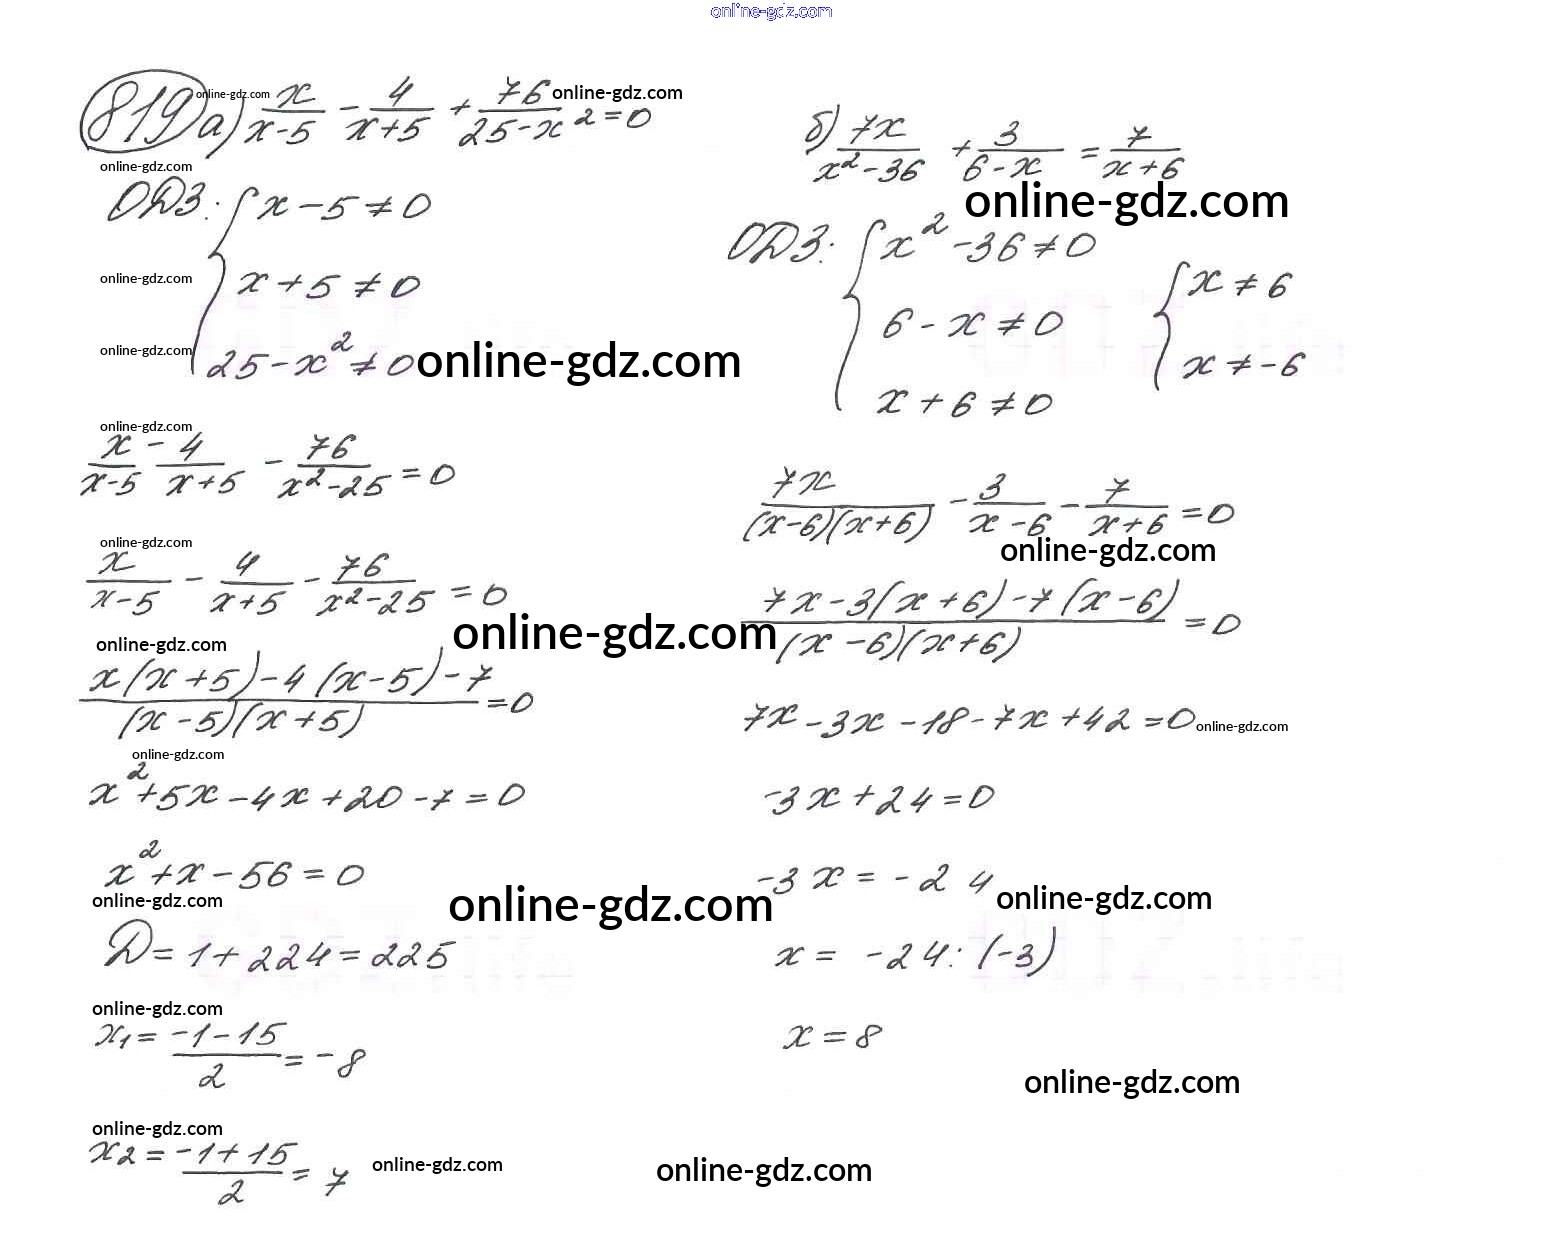 online-gdz.com
819 а) x/(x-5) - 4/(x+5) + 76/(25-x²) = 0
online-gdz.com
online-gdz.com
online-gdz.com
ОДЗ: { x - 5 ≠ 0
x + 5 ≠ 0
online-gdz.com
25 - x² ≠ 0
online-gdz.com
online-gdz.com
online-gdz.com
x/(x-5) - 4/(x+5) - 76/(x²-25) = 0
online-gdz.com
x/(x-5) - 4/(x+5) - 76/(x²-25) = 0
online-gdz.com
online-gdz.com
(x(x+5) - 4(x-5) - 7)/((x-5)(x+5)) = 0
online-gdz.com
x² + 5x - 4x + 20 - 7 = 0
x² + x - 56 = 0
online-gdz.com
online-gdz.com
D = 1 + 224 = 225
online-gdz.com
x₁ = (-1-15)/2 = -8
online-gdz.com
x₂ = (-1+15)/2 = 7
online-gdz.com
б) 7x/(x²-36) + 3/(6-x) = 7/(x+6)
online-gdz.com
ОДЗ: { x² - 36 ≠ 0
6 - x ≠ 0
x + 6 ≠ 0
{ x ≠ 6
x ≠ -6
7x/((x-6)(x+6)) - 3/(x-6) - 7/(x+6) = 0
online-gdz.com
(7x - 3(x+6) - 7(x-6))/((x-6)(x+6)) = 0
7x - 3x - 18 - 7x + 42 = 0
online-gdz.com
-3x + 24 = 0
-3x = -24
online-gdz.com
x = -24 : (-3)
x = 8
online-gdz.com
online-gdz.com